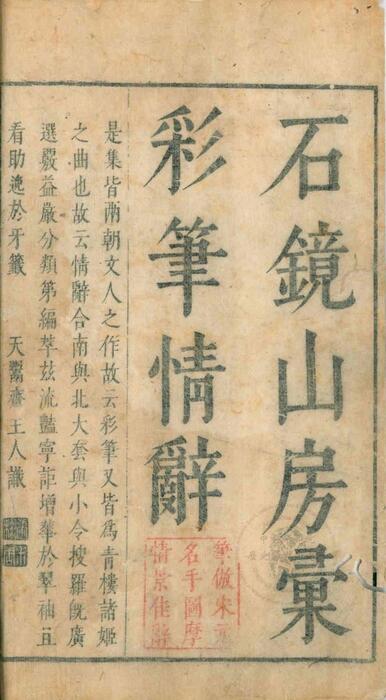 石鏡山房彙
彩筆情辭
是集皆兩朝文人之作故云彩筆又皆爲青樓諸姬
之曲也故云情辭合南與北大套與小令搜羅旣廣
選覈益嚴分類第編萃茲流豔寧詎增華於翠袖且
看助逸於牙籤　天翳齋主人識
筆倣宋元
名手圖摩
情景佳麗